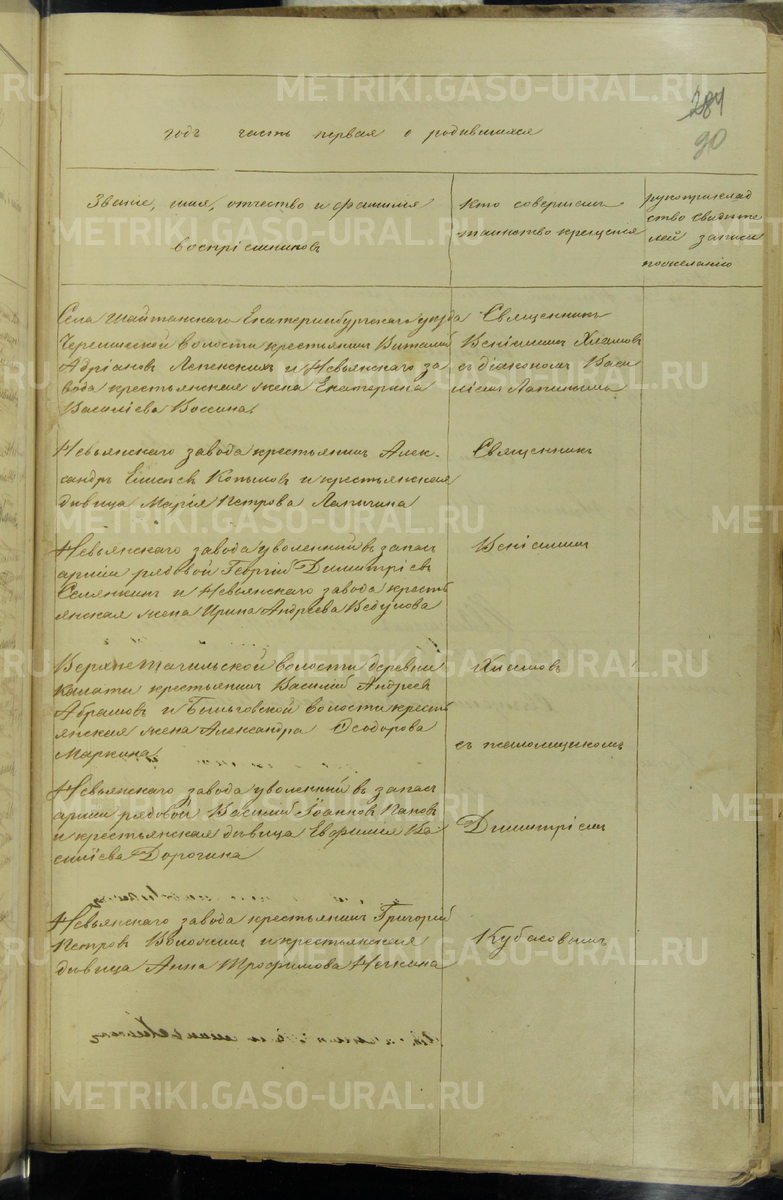 284
90
годъ часть первая о родившихся
Званіе, имя, отчество и фамилія
воспріемниковъ
Кто совершалъ
таинство крещенія
рукоприклад
ство свидѣте
лей записи
по желанію
Села Шайтанскаго Екатеринбургскаго уѣзда
волости крестьянинъ Виталій
Адріановъ и Невьянскаго за
вода крестьянская жена Екатерина
Василіева
Священникъ
съ діакономъ Васи
ліемъ
Невьянскаго завода крестьянинъ Алек-
сандръ Копыловъ и крестьянская
дѣвица Марія Петрова
Священникъ
Невьянскаго завода уволенный въ запасъ
арміи рядовой Георгій Димитріевъ
и Невьянскаго завода кресть
янская жена Ирина Андреева
Верхне Тагильской волости деревни
Калати крестьянинъ Василій Андреевъ
Абрамовъ и волости кресть
янская жена Александра Ѳеодорова
Маркина
съ псаломщикомъ
Невьянскаго завода уволенный въ запасъ
арміи рядовой Василій Іоанновъ Пановъ
и крестьянская дѣвица Евфимія Ва
силіева Дорогина
Димитріемъ
Невьянскаго завода крестьянинъ Григорій
Петровъ и крестьянская
дѣвица Анна Трофимова
Кубасовымъ
METRIKI.GASO-URAL.RU